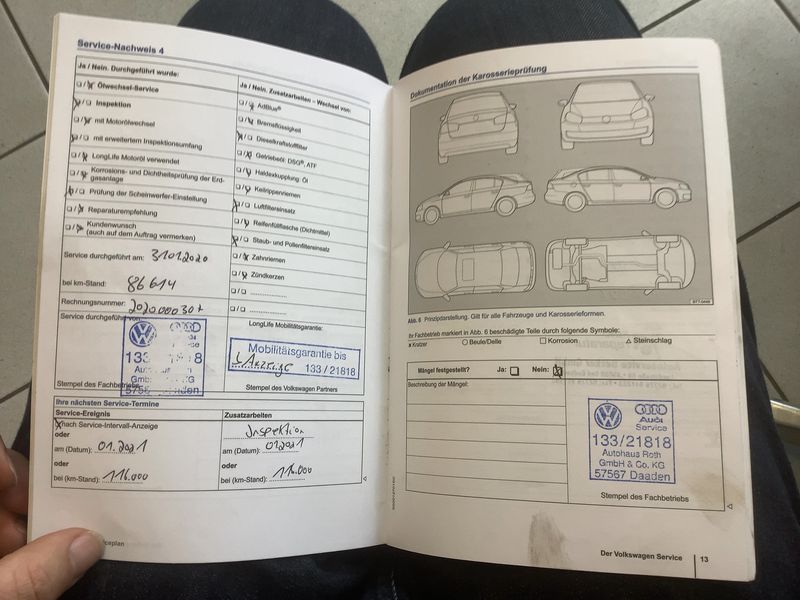 Service-Nachweis 4
Ja / Nein. Durchgeführt wurde:
Ölwechsel-Service
Inspektion
mit Motorölwechsel
mit erweitertem Inspektionsumfang
LongLife Motoröl verwendet
Korrosions- und Dichtheitsprüfung der Erd-
gasanlage
Prüfung der Scheinwerfer-Einstellung
Reparaturempfehlung
Kundenwunsch
(auch auf dem Auftrag vermerken)
Service durchgeführt am: 31.01.2020
bei km-Stand: 86614
Rechnungsnummer: 202000030
Service durchgeführt von:
Audi
Service
133 1818
GmbH KG
Daaden
Stempel des Fachbetriebs
Ja / Nein. Zusatzarbeiten – Wechsel von:
AdBlue®
Bremsflüssigkeit
Dieselkraftstofffilter
Getriebeöl: DSG®, ATF
Haldexkupplung: Öl
Keilrippenriemen
Luftfiltereinsatz
Reifenfüllflasche (Dichtmittel)
Staub- und Pollenfiltereinsatz
Zahnriemen
Zündkerzen
LongLife Mobilitätsgarantie:
Mobilitätsgarantie bis
133 / 21818
Stempel des Volkswagen Partners
Ihre nächsten Service-Termine
Service-Ereignis
nach Service-Intervall-Anzeige
oder
am (Datum): 01.2021
oder
bei (km-Stand): 116.000
Zusatzarbeiten
Inspektion
am (Datum): 01.2021
oder
bei (km-Stand): 116.000
Dokumentation der Karosserieprüfung
Abb. 6 Prinzipdarstellung. Gilt für alle Fahrzeuge und Karosserieformen.
Ihr Fachbetrieb markiert in Abb. 6 beschädigte Teile durch folgende Symbole:
x Kratzer O Beule/Delle □ Korrosion △ Steinschlag
Mängel festgestellt? Ja: Nein:
Beschreibung der Mängel:
Audi
Service
133/21818
Autohaus Roth
GmbH & Co. KG
57567 Daaden
Stempel des Fachbetriebs
Der Volkswagen Service 13